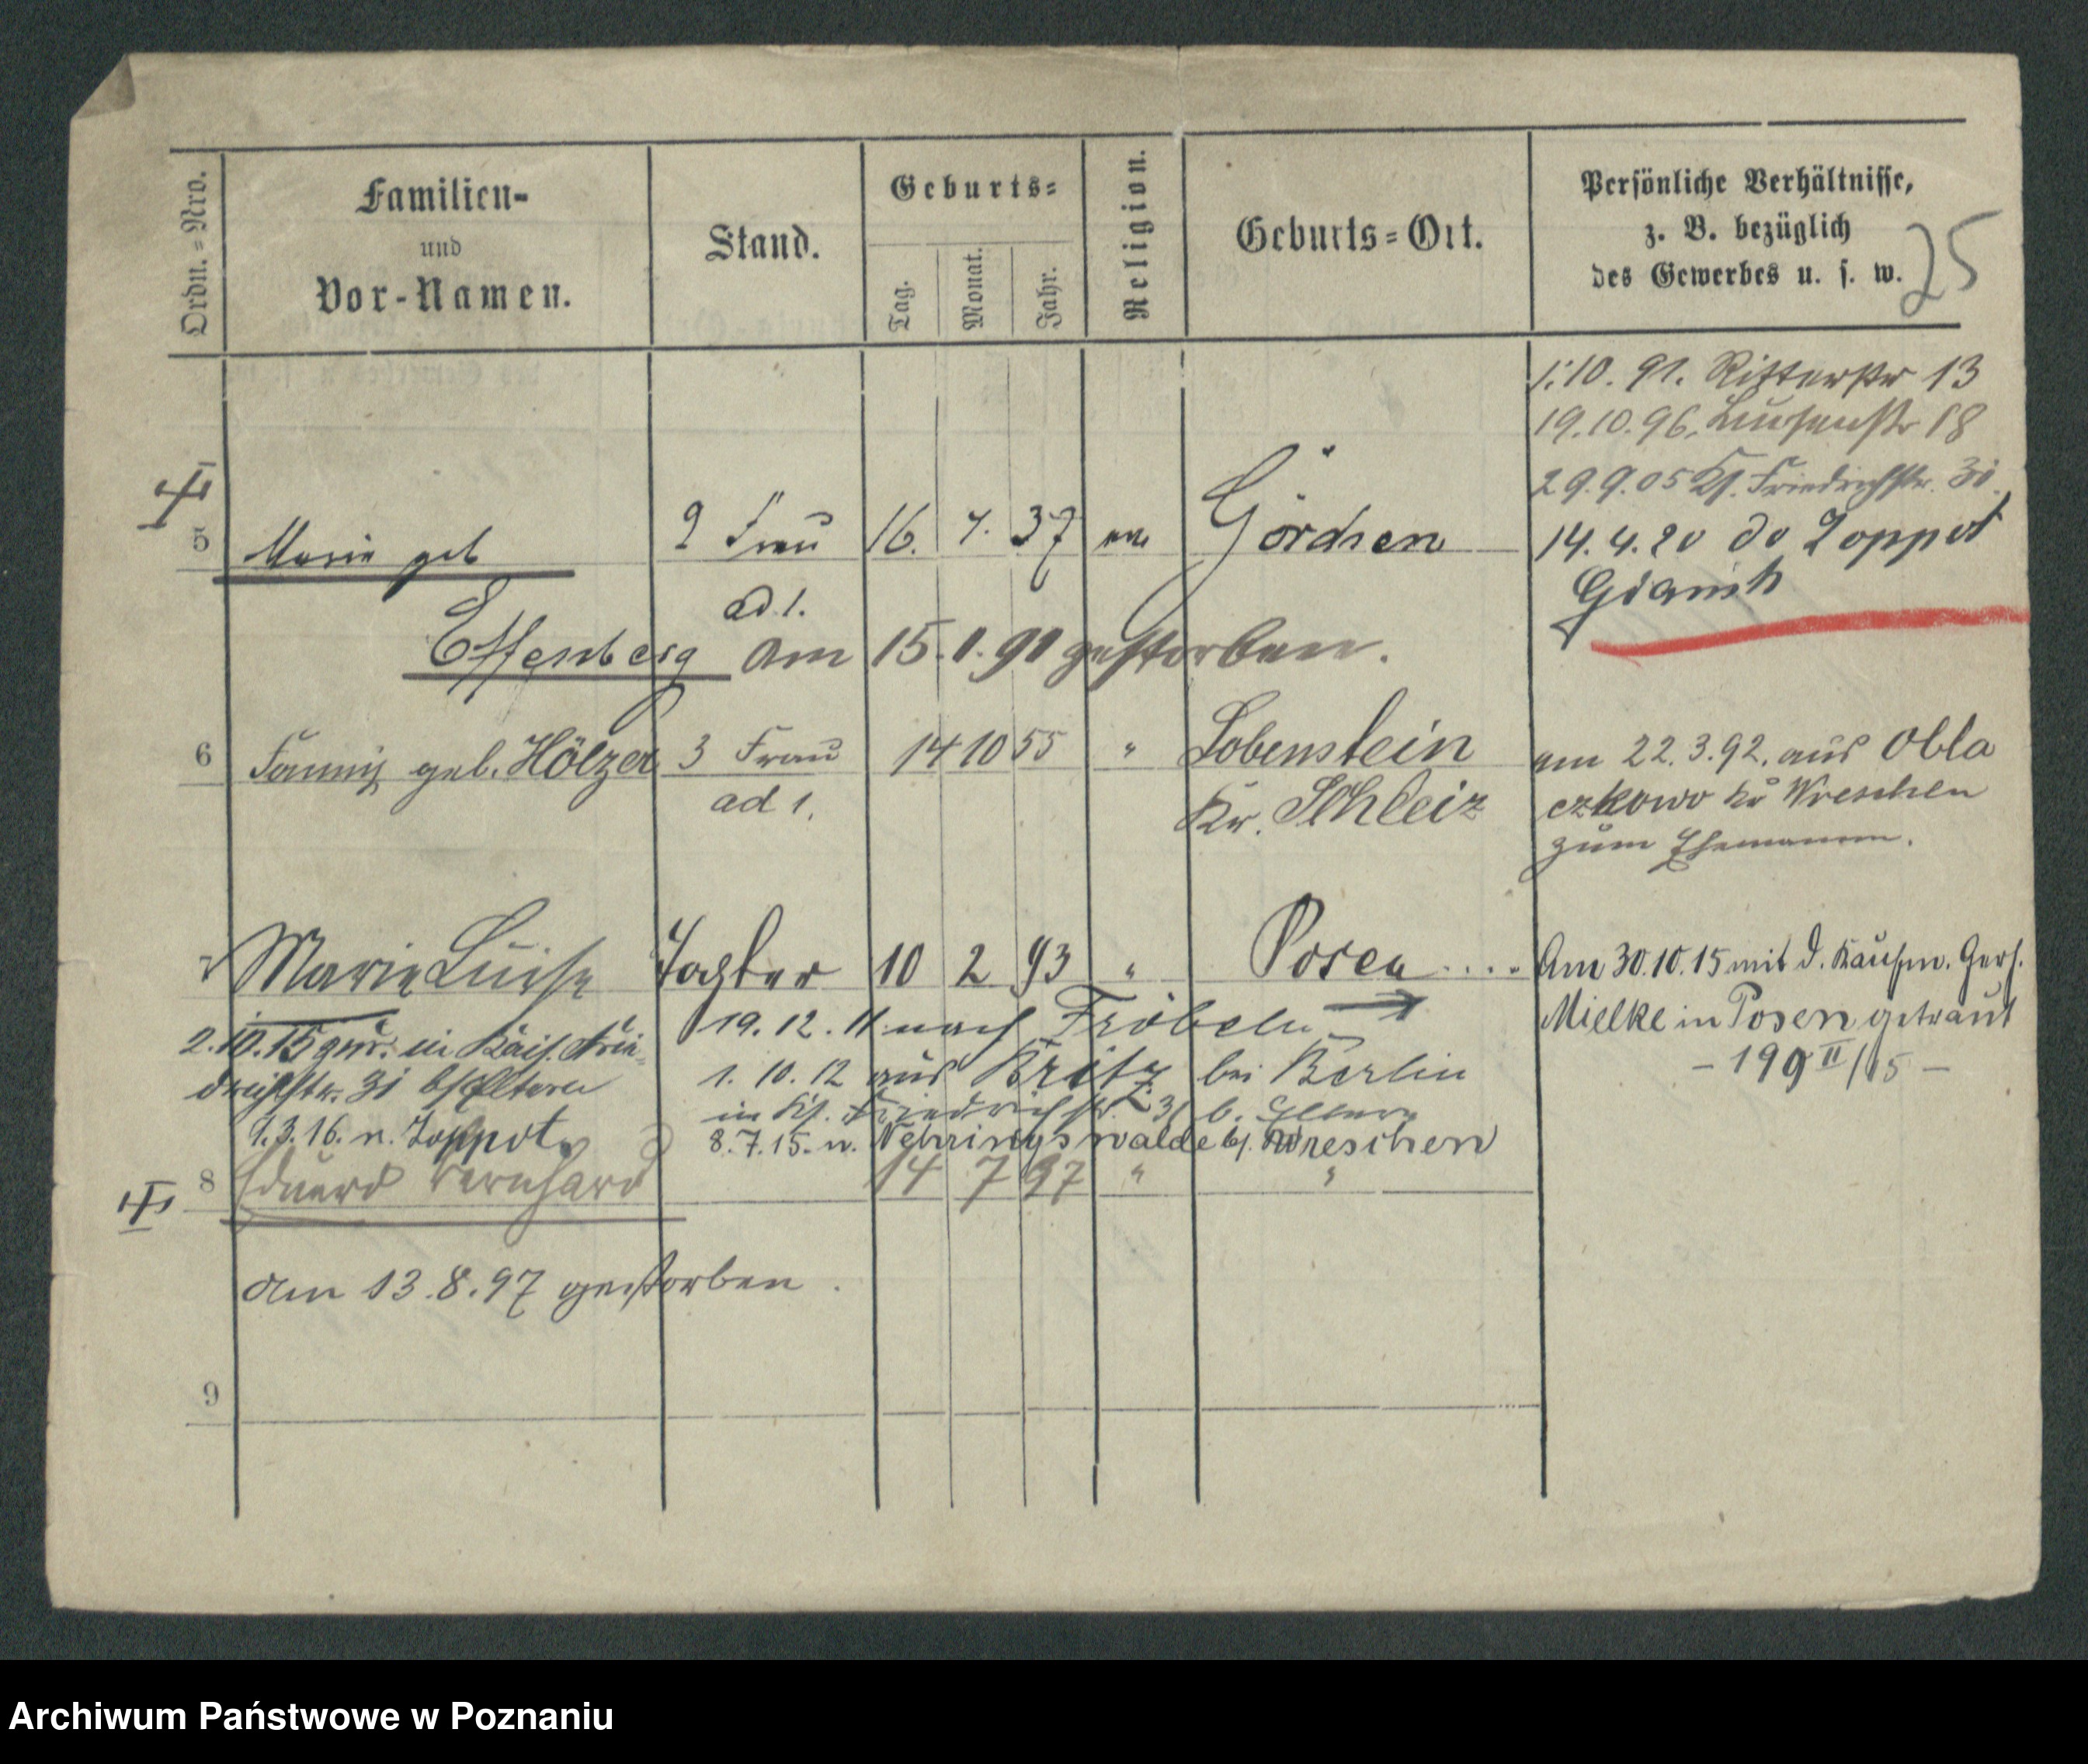 Ordn.=Nro.
Familien-
und
Vor-Namen.
Stand.
Geburts=
Tag.
Monat.
Jahr.
Religion.
Geburts=Ort.
Persönliche Verhältnisse,
z. B. bezüglich
des Gewerbes u. s. w.
25
1.10.91. Ritterstr 13
19.10.96. Luisenstr 18
29.9.05 Ks. Friedrichstr. 31
5 Marie geb 2 Frau 16. 7. 37 ev Görchen
14.4.20 do Zoppot
ad 1.
Effenberg am 15.1.91 gestorben.
6 Fanny geb. Hölzer 3 Frau 14 10 55 " Lobenstein
ad 1. Kr. Schleiz
am 22.3.92. aus Obla
czkowo Kr Wreschen
zum Ehemann.
7 Marie Luise Tochter 10 2 93 " Posen....
Am 30.10.15 mit d. Kaufm. Gerh.
Mielke in Posen getraut
- 199 II/15 -
19.12.11 nach Fröbeln
2.10.15 zur. in Kais. Frie-
drichstr. 31 b/Eltern
1.3.16. n. Zoppot.
1.10.12 aus Britz bei Berlin
in Ks. Friedrichstr. 31 b. Eltern
8.7.15. n. Nehringswalde b/. Wreschen
8 Eduard Bernhard 14 7 97 " "
am 13.8.97 gestorben.
9
Archiwum Państwowe w Poznaniu